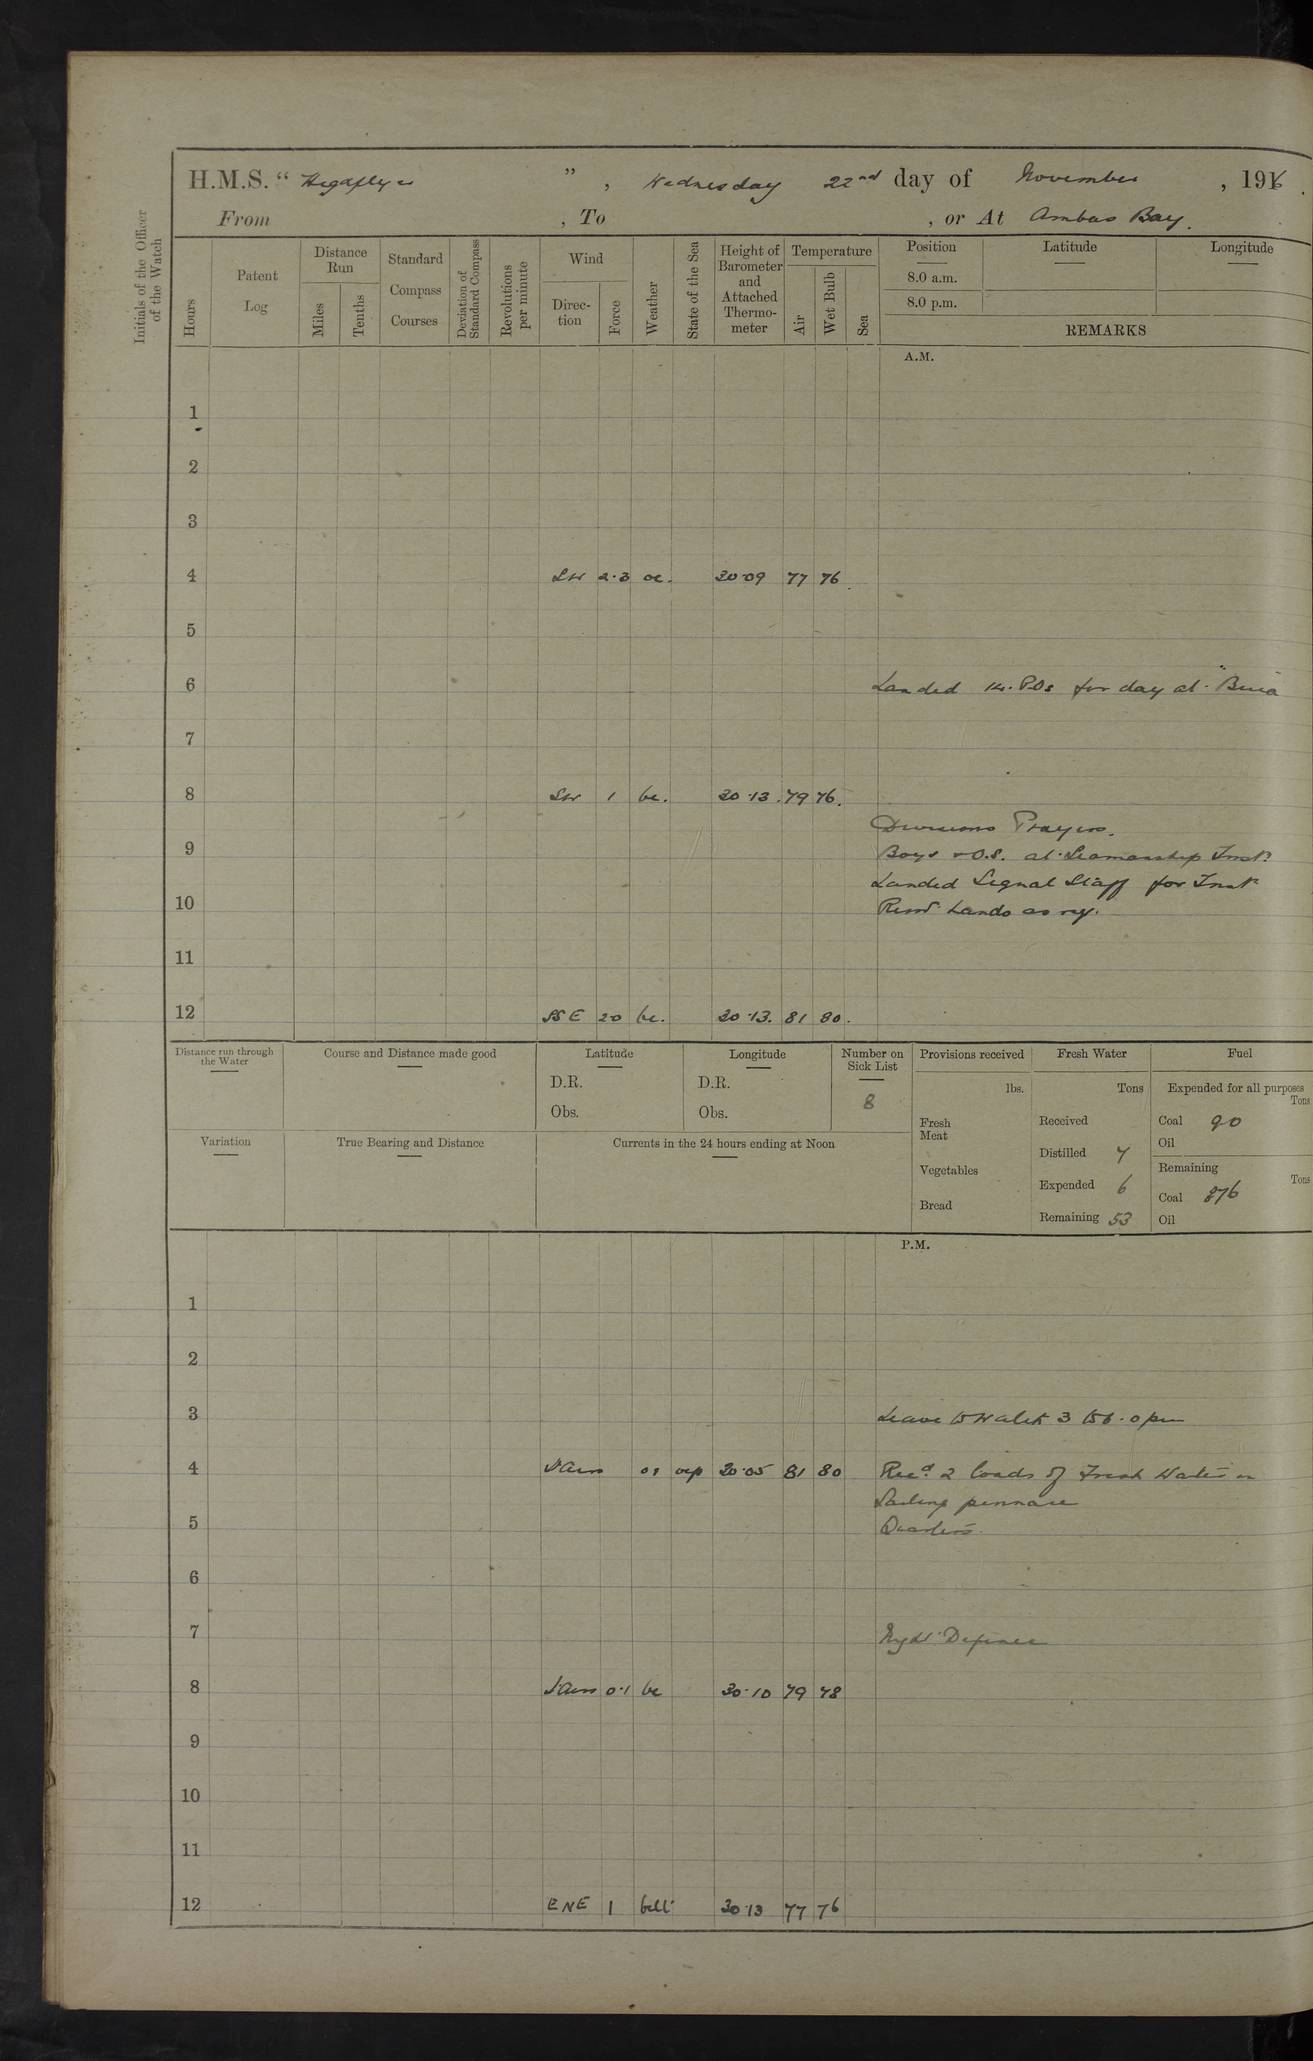 H.M.S. " Highflyer ", Wednesday 22nd day of November, 1916.
From , To , or At Ambas Bay.
Initials of the Officer of the Watch
Hours
Patent Log
Distance Run
Miles
Tenths
Standard Compass Courses
Deviation of Standard Compass
Revolutions per minute
Wind
Direc-tion
Force
Weather
State of the Sea
Height of Barometer and Attached Thermo-meter
Temperature
Air
Wet Bulb
Sea
Position
8.0 a.m.
8.0 p.m.
Latitude
Longitude
REMARKS
A.M.
1
2
3
4 SW 2·3 oc. 30·09 77 76
5
6 Landed 14. POs for day at "Buea"
7
8 SW 1 bc. 30·13 79 76.
Divisions Prayers.
9 Boys & O.S. at Seamanship Inst.
Landed Signal Staff for Inst
10 Remr Hands as req.
11
12 SSE 20 bc. 30·13. 81 80.
Distance run through the Water
Course and Distance made good
Latitude
D.R.
Obs.
Longitude
D.R.
Obs.
Number on Sick List
8
Variation
True Bearing and Distance
Currents in the 24 hours ending at Noon
Provisions received
lbs.
Fresh Meat
Vegetables
Bread
Fresh Water
Tons
Received
Distilled 7
Expended 6
Remaining 53
Fuel
Expended for all purposes
Tons
Coal 90
Oil
Remaining
Tons
Coal 876
Oil
P.M.
1
2
3 Leave to Watch 3 to 6.0 pm
4 Airs 30·05 81 80 Recd 2 loads of Fresh Water in
Sailing pinnace
5 Quarters.
6
7 Night Defence
8 Airs 0·1 bc 30·10 79 78
9
10
11
12 ENE 1 30·13 77 76